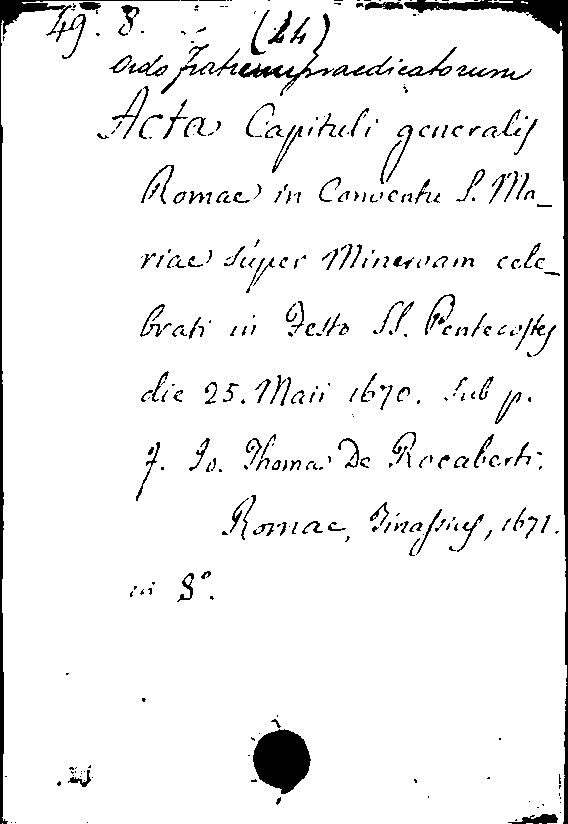 49. 8. (24)
Ordo Fratrum praedicatorum
Acta Capituli generalis
Romae in Conventu S. Ma-
riae súper Minervam cele-
brati in Festo SS. Pentecostes
die 25. Maii 1670. sub p.
F. Io. Thoma De Rocaberti.
Romae, Tinassius, 1671.
in 8°.